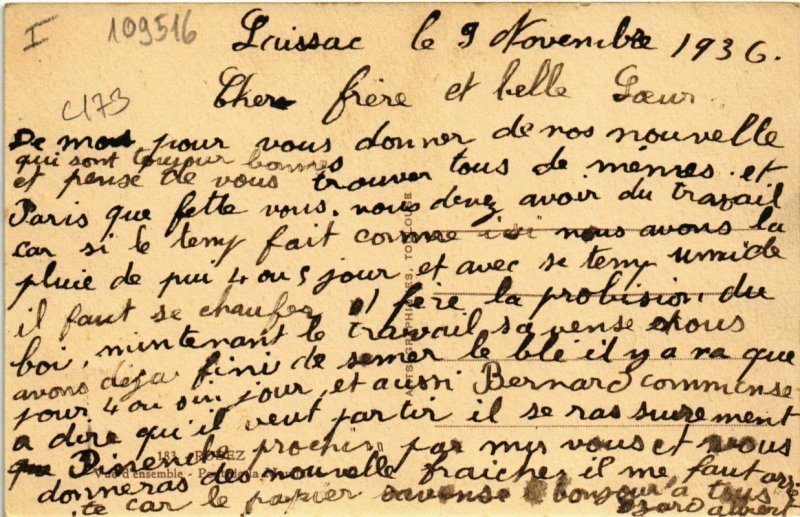 I 109516
C173
Laissac le 9 Novembre 1936.
Cher frère et belle Sœur
De mos pour vous donner de nos nouvelle
qui sont toujour bonnes
et pense de vous trouver tous de mèmes. et
Paris que fette vous. vous devez avoir du travail
car si le temp fait comme ici nous avons la
pluie de pui 4 ou 5 jour et avec se temp umide
il faut se chaufer. fére la probision du
boi, mintenant le travail s'avense nous
avons deja fini de semer le blé il y a ra que
jour 4 ou sin jour, et aussi Bernard commense
a dire qu'il veut partir il se ras surement
Dimenche prochin par mis vous et vous
donneras des nouvelle fraiches il me faut arre
te car le papier savense bonjour à tous
albert
RODEZ
d'ensemble